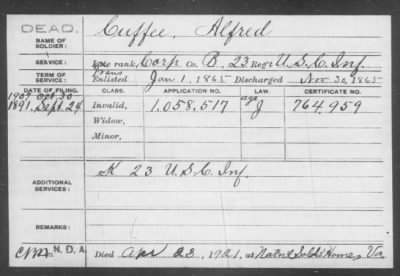 DEAD.
NAME OF SOLDIER: Cuffee, Alfred
SERVICE: Late rank, Corp Co. B, 23 Reg't U.S.C. Inf.
TERM OF SERVICE: Trans Enlisted Jan 1, 1865 Discharged Nov. 30, 1865
DATE OF FILING. CLASS. APPLICATION NO. LAW. CERTIFICATE NO.
1907 Oct. 30
1891. Sept. 24 Invalid, 1.058.517 age J 764.959
Widow,
Minor,
ADDITIONAL SERVICES: K 23 U.S.C. Inf.
REMARKS:
N.D.A. Died Apr 23, 1921, at Nat'nl Sold's Home, Va